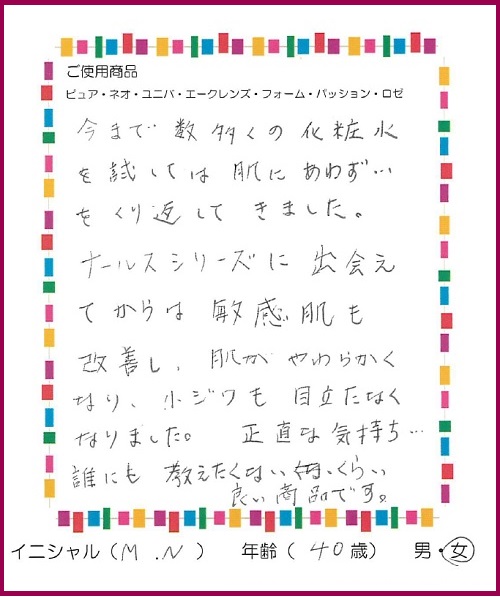 ご使用商品
ピュア・ネオ・ユニバ・エークレンズ・フォーム・パッション・ロゼ
今まで数多くの化粧水
を試しては肌にあわず…
をくり返してきました。
ナールスシリーズに出会え
てからは敏感肌も
改善し、肌がやわらかく
なり、小ジワも目立たなく
なりました。 正直な気持ち…
誰にも教えたくないくらい
良い商品です。
イニシャル（M.N） 年齢（40歳） 男・女